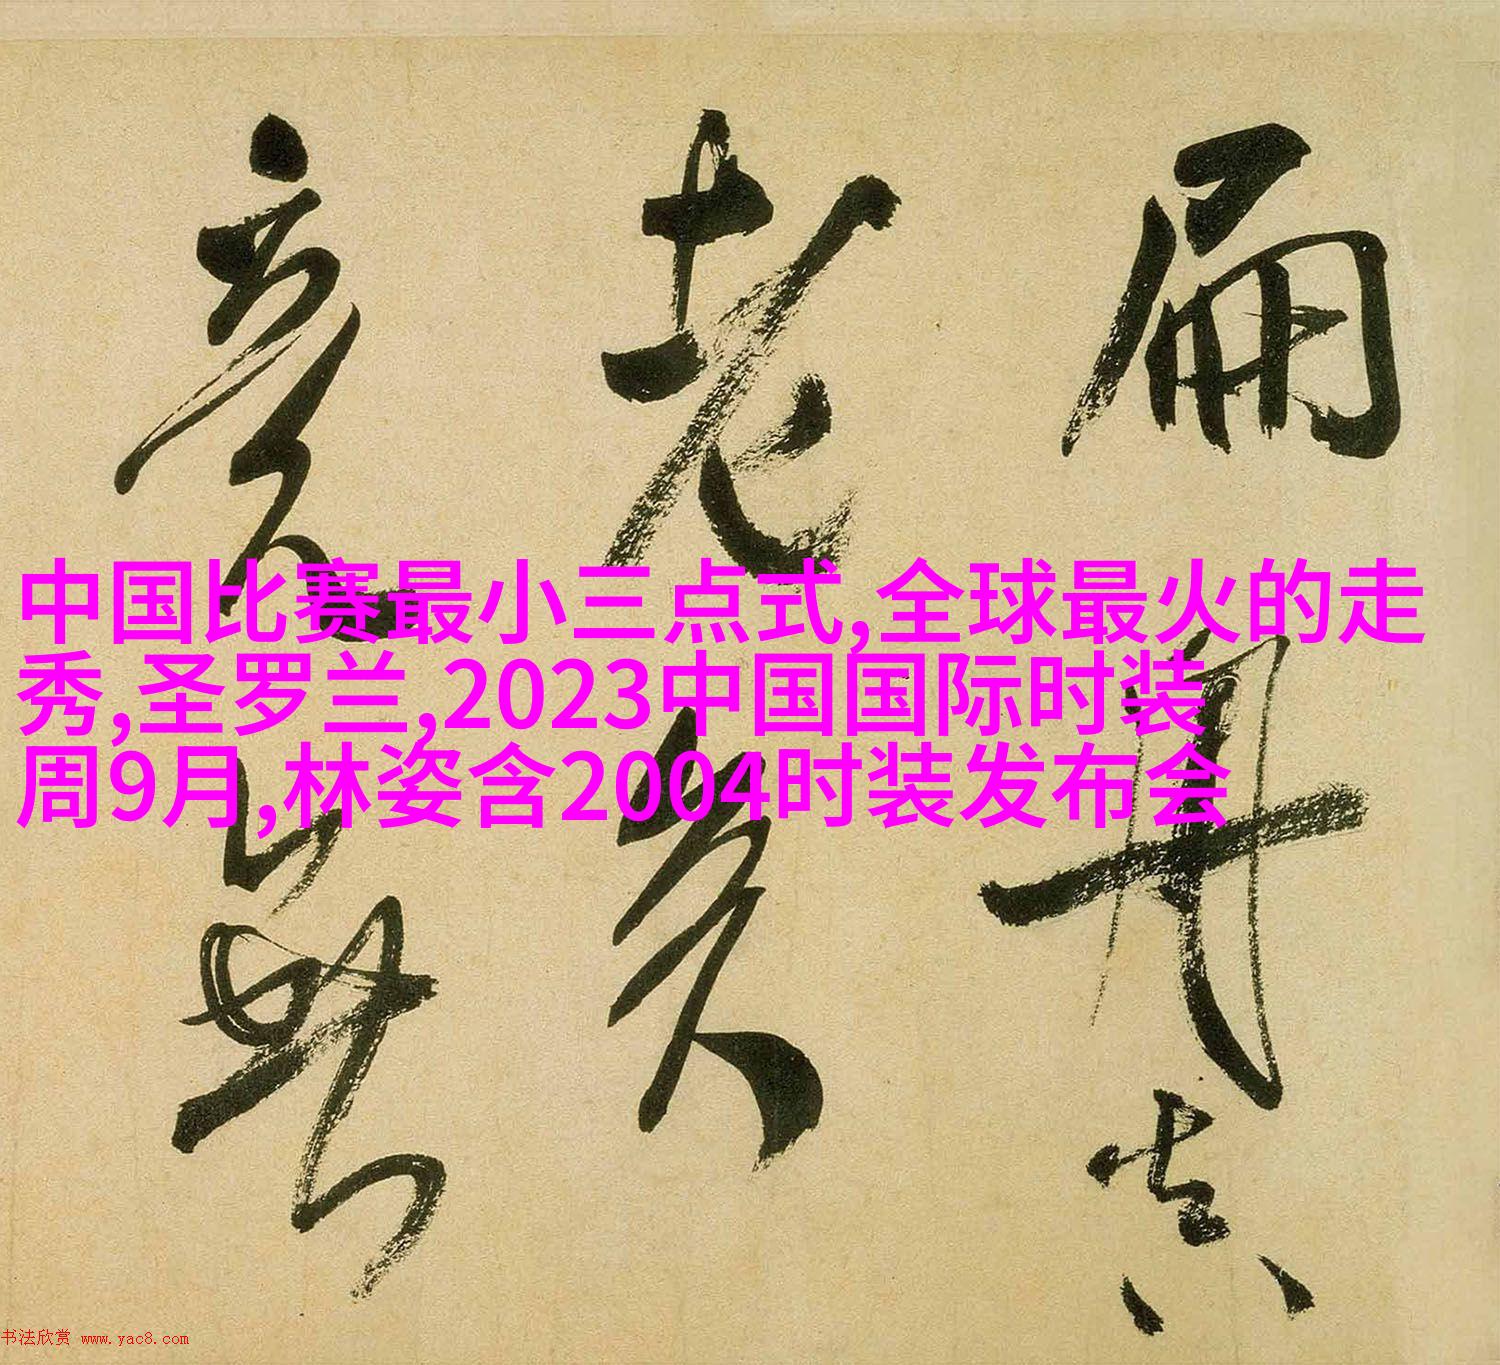 扁舟去
老矣
意无
中国比赛最小三点式,全球最火的走
秀,圣罗兰,2023中国国际时装
周9月,林姿含2004时装发布会
书法欣赏 www.yac8.com